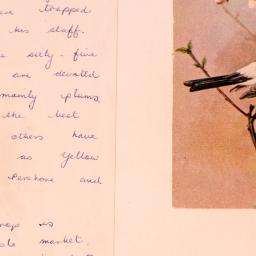 trapped
his staff.
sixty-five
are devoted
mainly plums,
the best
others have
as Yellow
Pershore and
is
market.